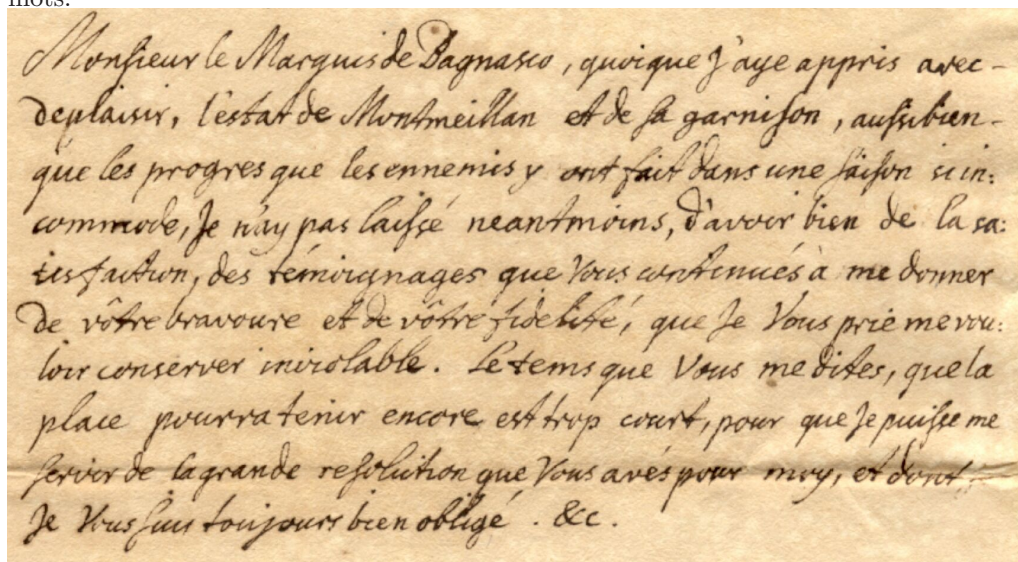 mots.
Monsieur le Marquis de Bagnasco, quoique J'aye appris avec-
deplaisir, l'estat de Montmeillan et de sa garnison, aussi bien-
que les progres que les ennemis y ont fait dans une saison si in:
commode, Je n'ay pas laissé neantmoins, d'avoir bien de la sa:
tisfaction, des témoignages que Vous continués à me donner
de vôtre bravoure et de vôtre fidelité, que Je Vous prie me vou:
loir conserver inviolable. Le tems que Vous me dites, que la
place pourra tenir encore est trop court, pour que Je puisse me
servir de la grande resolution que Vous avés pour moy, et dont
Je Vous suis toujours bien obligé. &c.